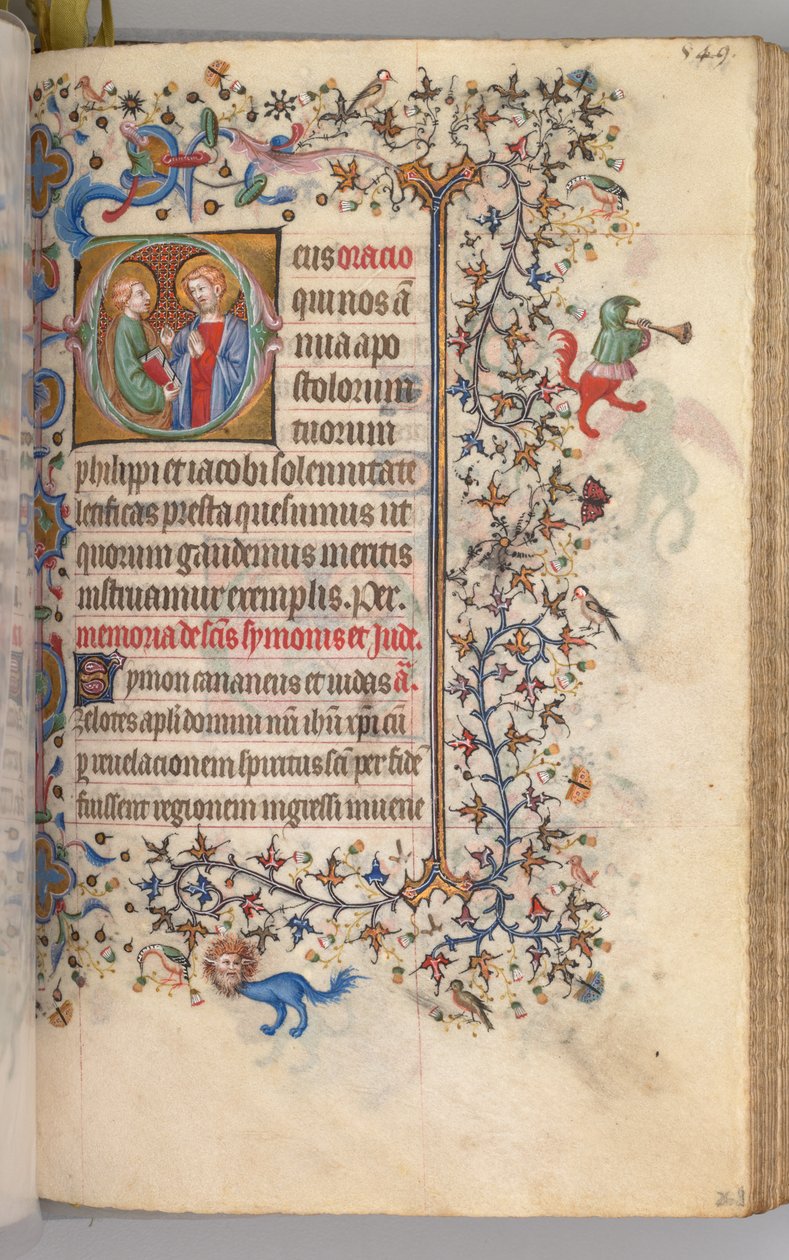 549.
eus oracio
qui nos ā
nua apo
stolorum
tuorum
philippi et iacobi solennitate
letificas presta quesumus ut
quorum gaudemus meritis
instruamur exemplis. Per.
memoria de scīs symonis et Jude.
Symon cananeus et iudas ā.
zelotes apli domini nrī ihū xpī cū
p reuelacionem spiritus scī per fidē
fuissent regionem ingressi inuene